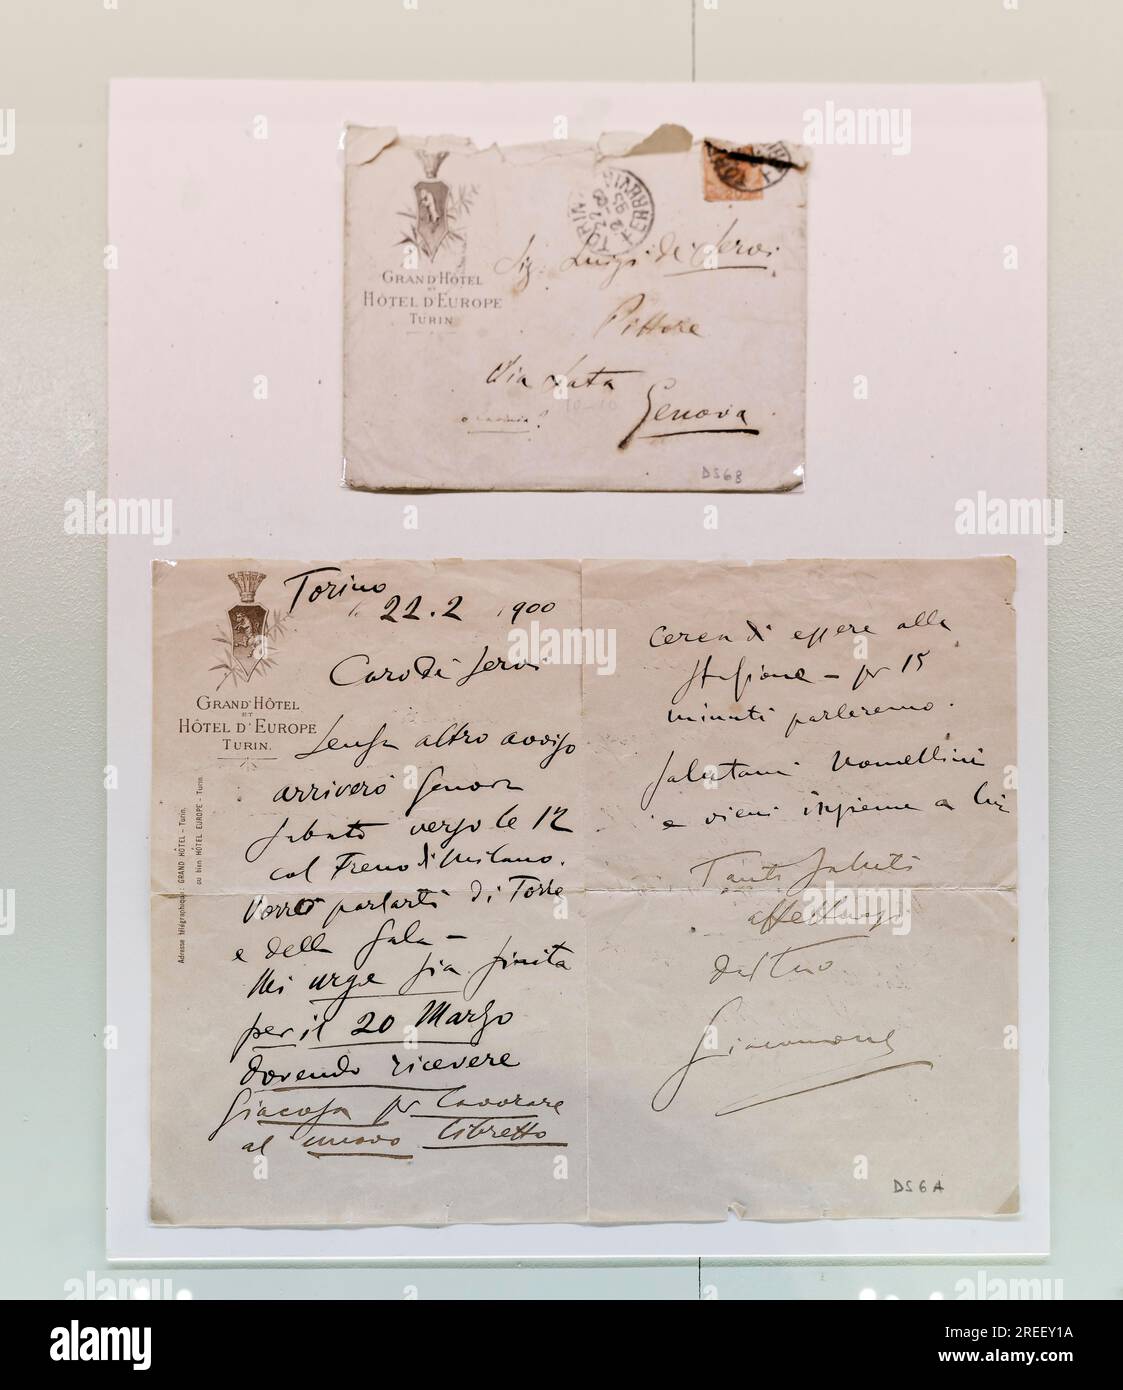 GRAND'HÔTEL
ET
HÔTEL D'EUROPE
TURIN
TORINO
FERROVIA
22-2
Sig. Luigi De Servi
Pittore
Via Lata
Genova
DS6B
GRAND'HÔTEL
ET
HÔTEL D'EUROPE
TURIN.
Adresse télégraphique: GRAND HÔTEL - Turin.
ou bien HÔTEL EUROPE - Turin
Torino
22.2 1900
Caro De Servi
Senza altro avviso
arriverò Genova
Sabato verso le 12
col Treno di Milano.
Vorrei parlarti di Torre
e della Sala -
Mi urge sia finita
per il 20 Marzo
dovendo ricevere
Giacosa per lavorare
al nuovo libretto
Cerca di essere alla
stazione - per 15
minuti parleremo.
Salutami Nomellini
e vieni insieme a lui
Tanti saluti
affettuosi
dal tuo
Giacomone
DS6A
alamy
Image ID: 2REEY1A
www.alamy.com